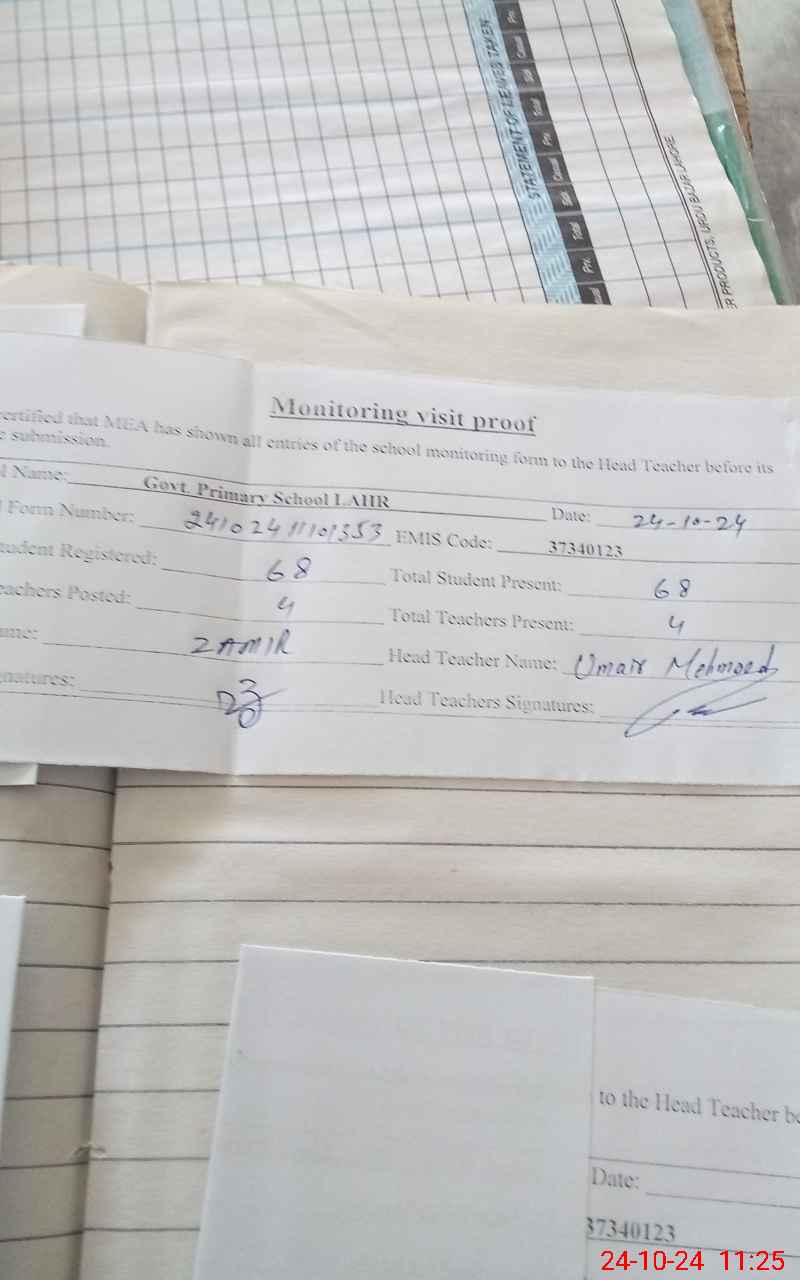 STATEMENT OF LEAVES TAKEN
Casual Prv. Total Sick Casual Prv. Total Sick Casual Prv.
ER PRODUCTS, URDU BAZAR LAHORE
Monitoring visit proof
certified that MEA has shown all entries of the school monitoring form to the Head Teacher before its
e submission.
l Name: Govt. Primary School LAHR Date: 24-10-24
l Form Number: 24102411101353 EMIS Code: 37340123
tudent Registered: 68 Total Student Present: 68
eachers Posted: 4 Total Teachers Present: 4
ame: ZAMIR Head Teacher Name: Umair Mehmood
gnatures: Head Teachers Signatures:
to the Head Teacher be
Date:
37340123
24-10-24 11:25